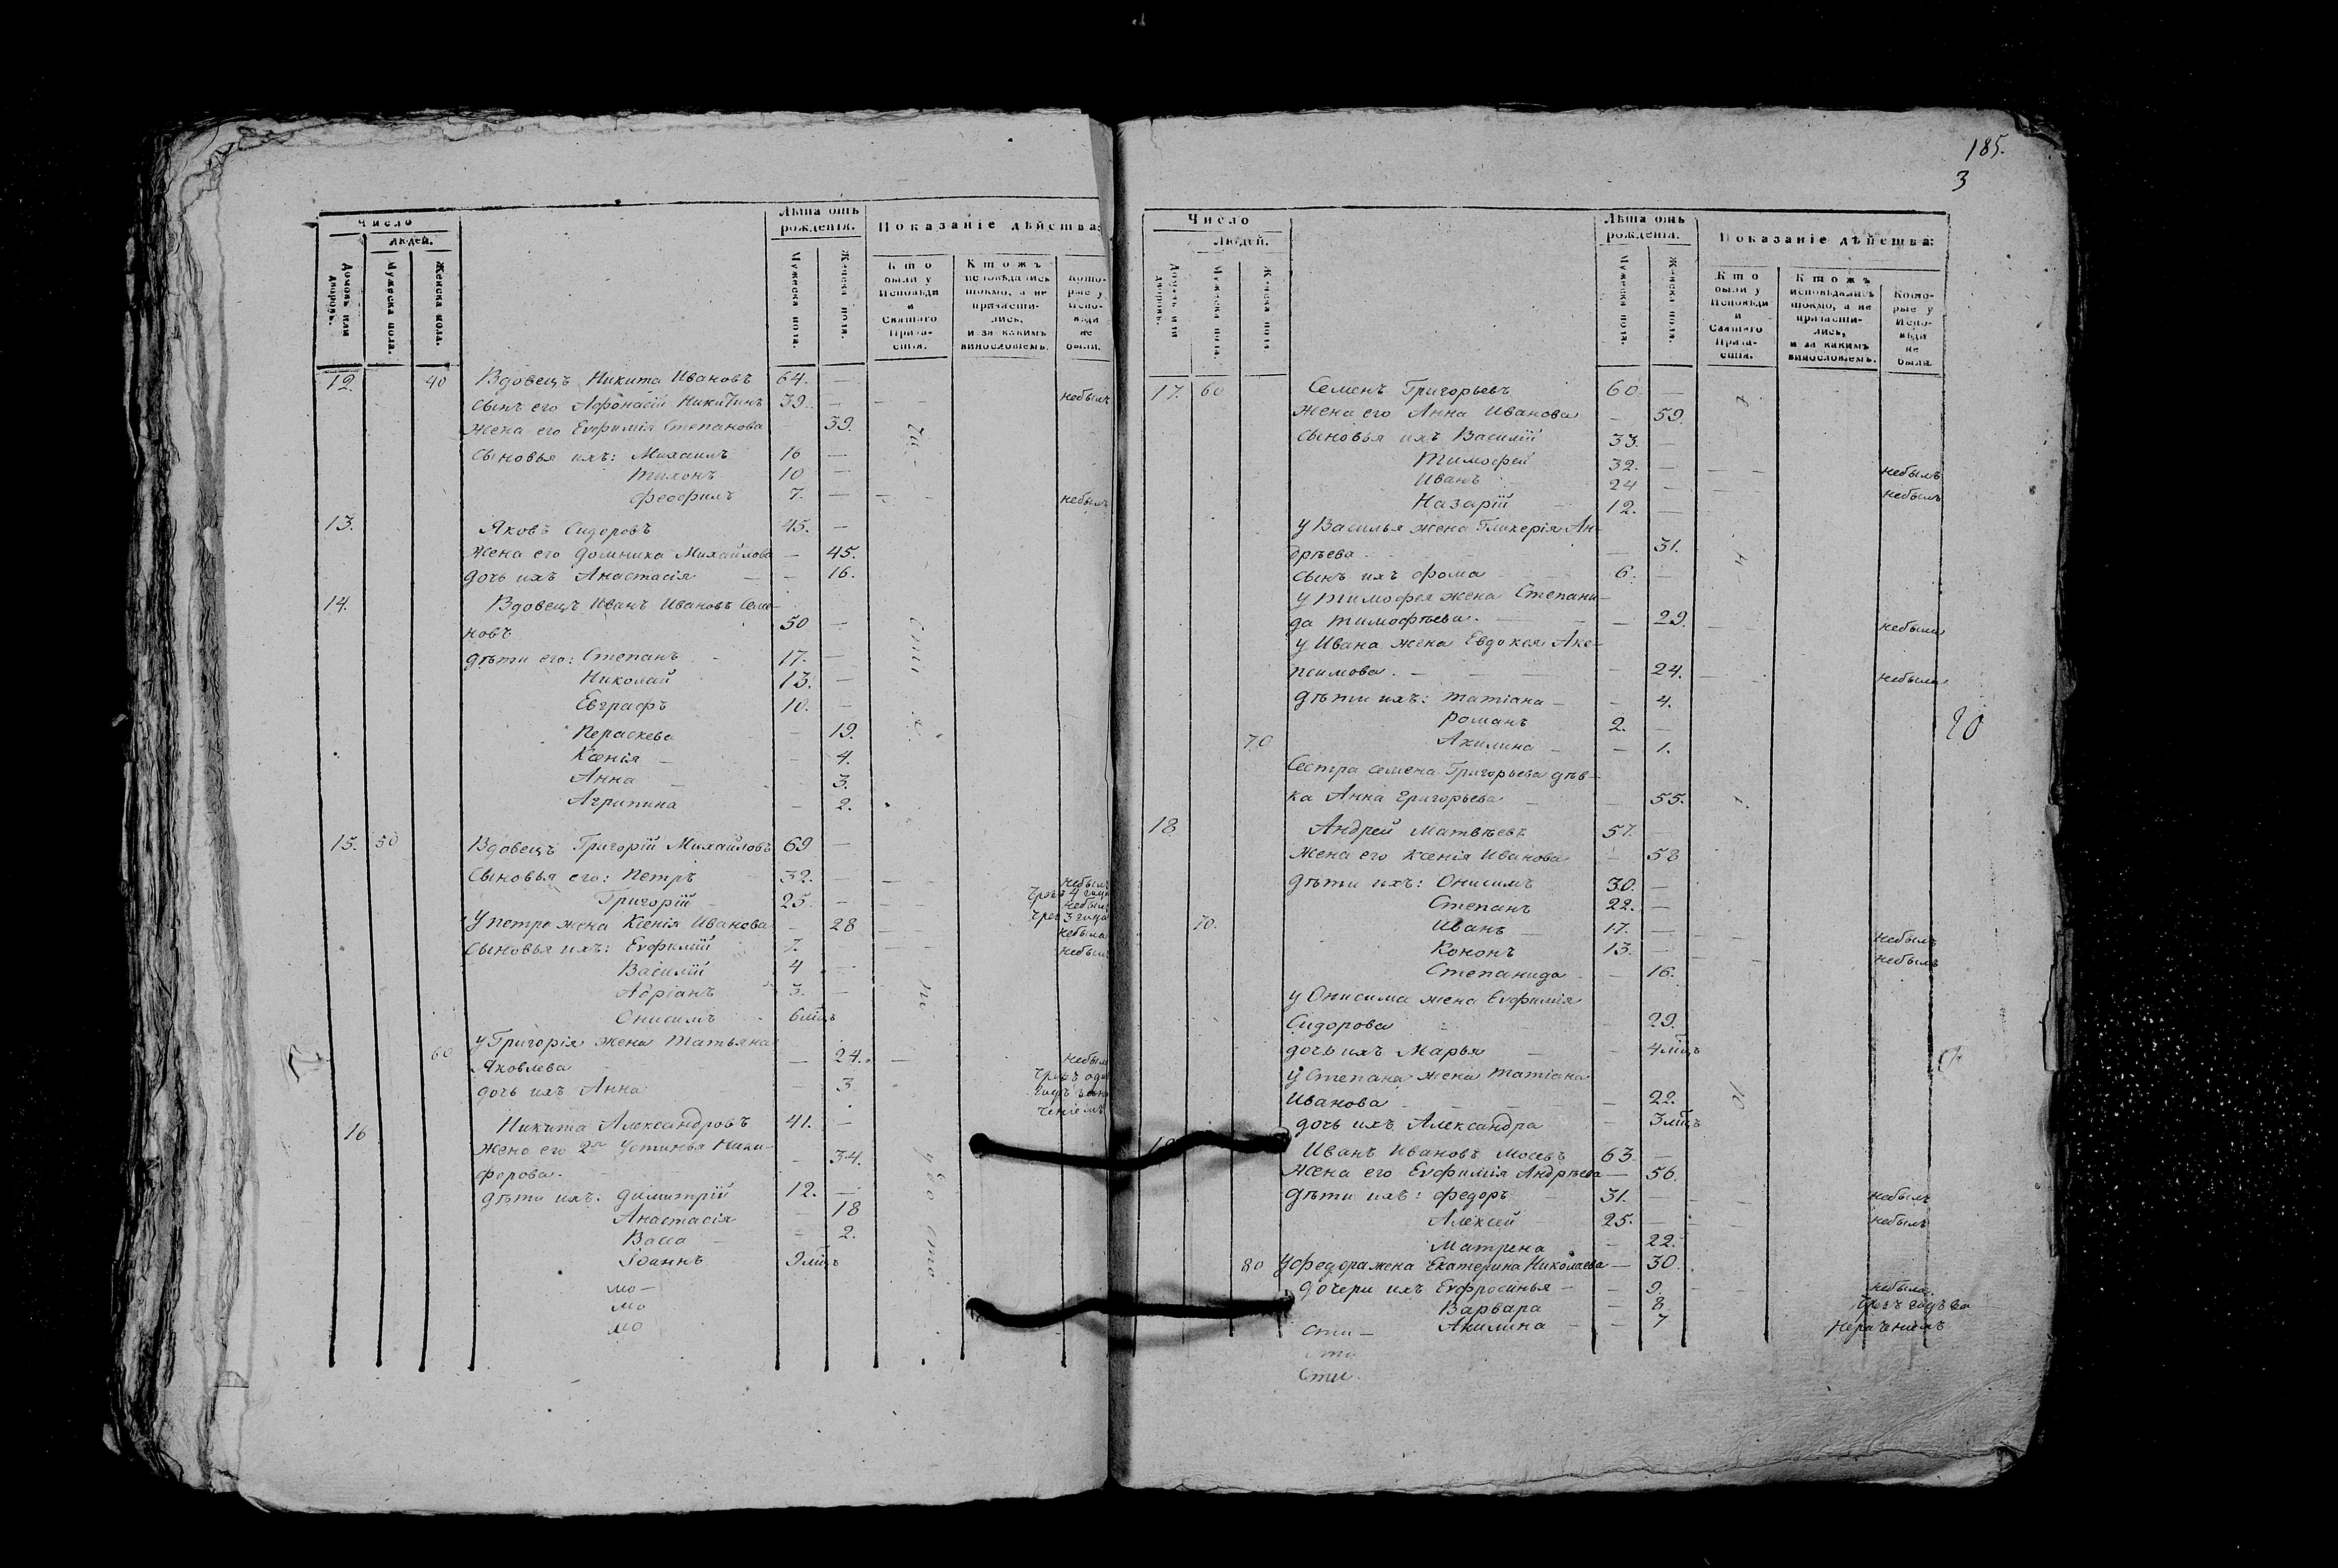 185.
3
Число
Людей.
Домовъ или дворовъ.
Мужеска пола.
Женска пола.
Лѣта отъ рожденія.
Мужеска пола.
Женска пола.
Показаніе дѣйства:
Кто были у Исповѣди и Святаго Прича-стія.
Ктожъ исповѣдались токмо, а не причасти-лись, и за какимъ винословіемъ.
Кото-рые у Испо-вѣди не были.
12. 40 Вдовецъ Никита Ивановъ 64. —
сынъ его Афонасій Никитинъ 39. — — — небылъ
жена его Евфимія Степанова — 39.
сыновья ихъ: Михаилъ 16 —
Тихонъ 10 —
Феофилъ 7. — — — небылъ
13. Яковъ Сидоровъ 45. —
жена его Домника Михайлова — 45.
дочь ихъ Анастасія — — 16.
14. Вдовецъ Иванъ Ивановъ Семе-
новъ 50 —
дѣти его: Степанъ 17. —
Николай 13. —
Евграфъ 10. —
Пераскева — 19.
Ксенія — — 4.
Анна — — 3.
Агрипина — 2.
15. 50 Вдовецъ Григорій Михайловъ 69 —
Сыновья его: Петръ 32. — — — небылъ
Григорій 25. — — — небылъ
У Петра жена Ксенія Иванова — 28 — небыла
Сыновья ихъ: Евфимій 7. — — небылъ
Василій 4 —
Адріанъ 3. —
Онисимъ 6 мцъ
60 У Григорія жена Татьяна
Яковлева — 24. — небыла
дочь ихъ Анна 3
16 Никита Александровъ 41. —
жена его 2я Устинья Ники-
форова. — 34.
дѣти ихъ: Димитрій 12. —
Анастасія — 18
Васса — — 2.
Іоаннъ 9 мцъ
мо —
мо
мо
Число
Людей.
Домовъ или дворовъ.
Мужеска пола.
Женска пола
Лѣта отъ рожденія.
Мужеска пола.
Женска пола.
Показаніе дѣйства:
Кто были у Исповѣди и Святаго Прича-стія.
Ктожъ исповѣдались токмо, а не причасти-лись, и за какимъ винословіемъ.
Кото-рые у Испо-вѣди не были.
17. 60 Семенъ Григорьевъ 60. —
жена его Анна Иванова — 59.
сыновья ихъ Василій 33. —
Тимофей 32. — — — небылъ
Иванъ 24 — — небылъ
Назарій 12. —
у Василья жена Гликерія Ан-
дрѣева — 31.
сынъ ихъ Фома 6. —
у Тимофея жена Степани-
да Тимофѣева. — 29. — небыла
у Ивана жена Евдокея Аке-
псимова. — 24. — небыла
дѣти ихъ: Татіана — — 4.
Романъ 2. —
70 Акилина — — 1.
Сестра Семена Григорьева дѣв-
ка Анна Григорьева — — 55.
18 Андрей Матвѣевъ 57. —
жена его Ксенія Иванова — 58
дѣти ихъ: Онисимъ 30. —
Степанъ 22. —
70. Иванъ 17. — — небылъ
Кононъ 13. — — небылъ
Степанида — 16.
у Онисима жена Евфимія
Сидорова — 29.
дочь ихъ Марья — — 4 мцъ
у Степана жена Татіана
Иванова — 22.
дочь ихъ Александра — 3 мцъ
Иванъ Ивановъ Мосевъ 63. —
жена его Евфимія Андрѣева — 56.
дѣти ихъ: Федоръ 31. — — небылъ
Алексѣй 25. — — небылъ
Матрена — 22.
80 У Федора жена Екатерина Николаева — 30.
дочери ихъ Евфросинья — — 9. — небыла
Варвара — 8
Акилина — — 7
Сти —
Сти
Сти